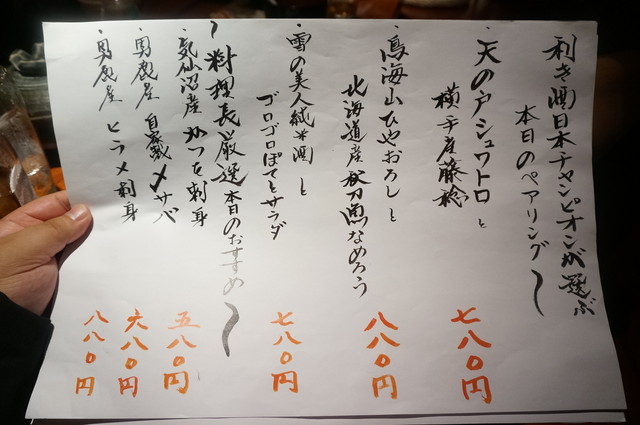 利き酒日本チャンピオンが選ぶ
本日のペアリング〜
・天の戸シュワトロと
横手産藤稔
七八〇円
・鳥海山ひやおろしと
北海道産秋刀魚なめろう
八八〇円
・雪の美人純米酒と
ゴロゴロぽてとサラダ
七八〇円
〜料理長厳選本日のおすすめ〜
・気仙沼産かつを刺身
五八〇円
・男鹿産自家製〆サバ
六八〇円
・男鹿産ヒラメ刺身
八八〇円